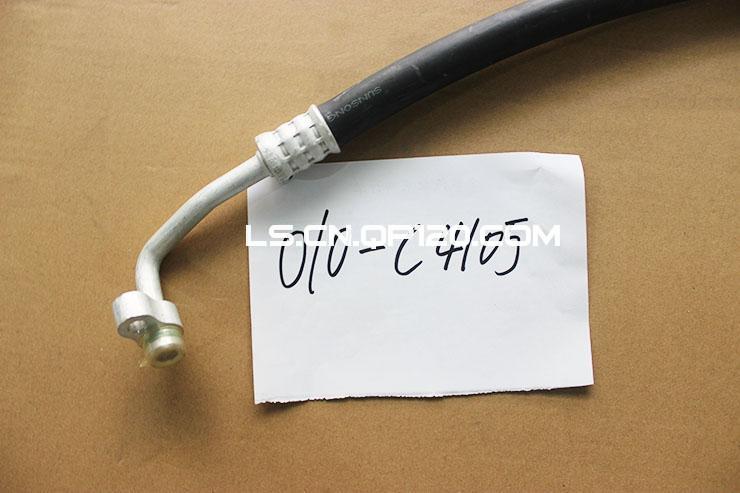 SUNSONG
LS.CN.QP120.COM
010-C4105